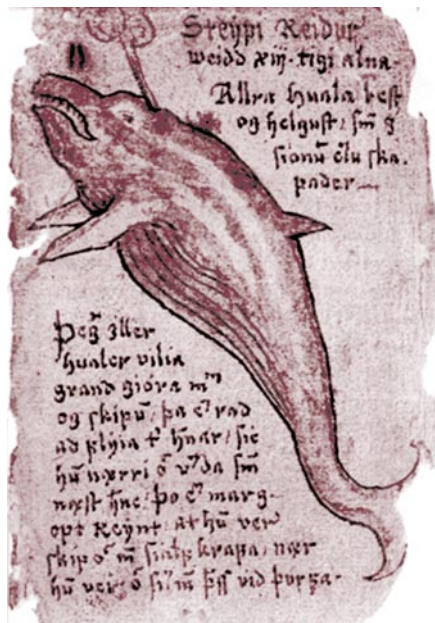 Steypi Reidur
weidd xiij · tigi alna ·
Allra huala best
og helgust / sm̄ g
sionū ... ska.
pader
Þeḡ ...ller
hualer vilia
grand giöra m̄
og skipū / þa e᷎ rad
ad flyia t᷎ h̄nar / sie
hū nærri ... sm̄
næst h̄ne / þo e᷎ marg-
opt Reynt / at hū ver
skip ... krapa / nær
hū ... vid þurfa ·